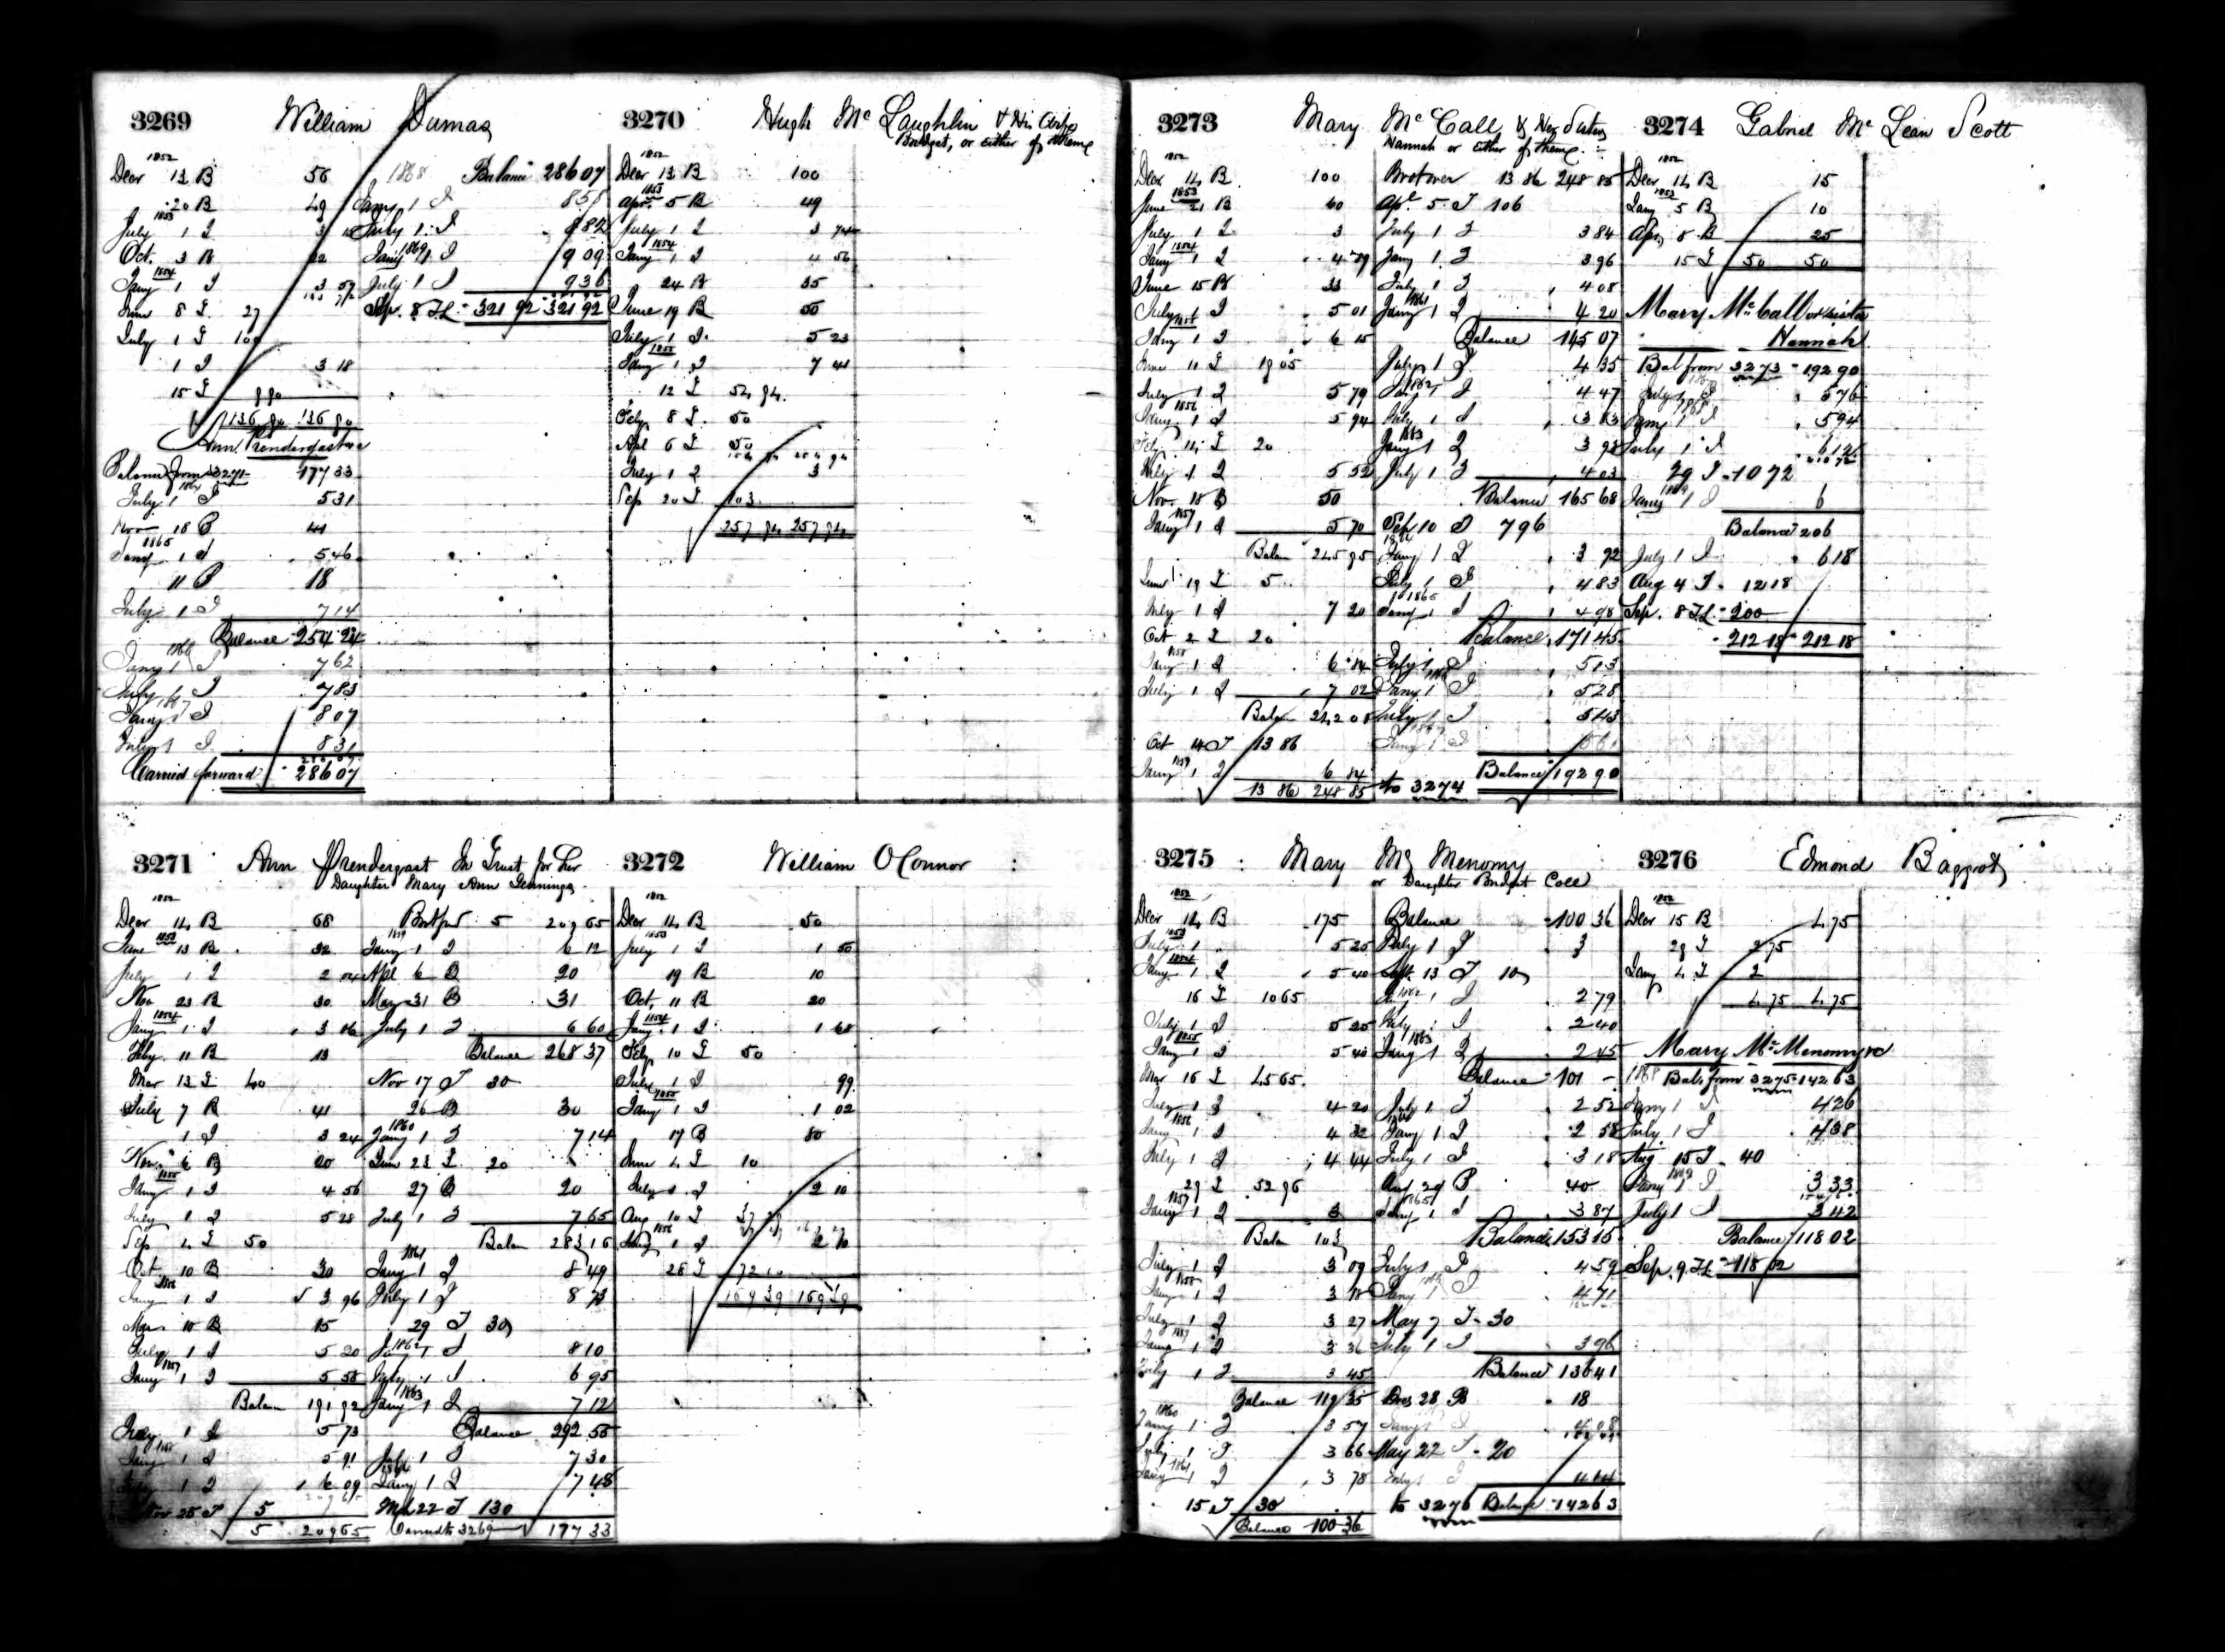 3269 William Dumas
1852
Decr 13 B 56
20 B 49
1853
July 1 I
Oct. 3 B 22
1854
Jany 1 I
June 8 I 27
July 1 I 100
1 I 3 18
15 I 9 90
136 90 136 90
Ann Prendergast
Balance from 3271 177 33
1864
July 1 I 5 31
Nov 18 B 41
1865
Jany 1 I 5 46
11 B 18
July 1 I 7 14
Balance 254 24
1866
Jany 1 I 7 62
July 1 I 7 83
1867
Jany 1 I 8 07
July 1 I 8 31
Carried forward 286 07
1868 Balance 286 07
Jany 1 I 8 58
July 1 I 8 82
1869
Jany 1 I 9 09
July 1 I 9 36
Sep. 8 I.L. 321 92 321 92
3270 Hugh Mc Laughlin & His Wife
Bridget, or either of them
1852
Decr 13 B 100
1853
Apr. 5 B 49
July 1 I 3 74
1854
Jany 1 I 4 56
24 B 35
June 19 B 50
July 1 I 5 23
1855
Jany 1 I 7 41
12 I 54 94
Feby 8 I 50
Apl 6 I 50
July 1 I 3
Sep 20 I 103
257 94 257 94
3271 Ann Prendergast In Trust for her
Daughter Mary Ann Jennings
1852
Decr 14 B 68
1853
June 13 B 32
July 1 I 2 04
Nov 23 B 30
1854
Jany 1 I 3 06
Feby 11 B 13
Mar 13 I 40
July 7 B 41
1 I 3 24
Nov. 6 B 20
1855
Jany 1 I 4 56
July 1 I 5 28
Sep 4 I 50
Oct 10 B 30
1856
Jany 1 I 3 96
Mar 10 B 15
July 1 I 5 20
1857
Jany 1 I 5 58
Balance 191 92
July 1 I 5 73
1858
Jany 1 I 5 91
July 1 I 6 09
Nov 25 I 5
5 209 65
Brot fwd 5 209 65
1859
Jany 1 I 6 12
Apl 6 B 20
May 31 B 31
July 1 I 6 60
Balance 268 37
Nov 17 I 30
26 B 30
1860
Jany 1 I 7 14
June 23 I 20
27 B 20
July 1 I 7 65
Balan 283 16
1861
Jany 1 I 8 49
July 1 I 8 73
29 I 30
1862
Jany 1 I 8 10
July 1 I 6 95
1863
Jany 1 I 7 12
Balance 292 55
July 1 I 7 30
1864
Jany 1 I 7 48
Mch 22 I 130
Carried to 3269 177 33
3272 William O'Connor
1852
Decr 14 B 50
1853
July 1 I 1 50
19 B 10
Oct. 11 B 20
1854
Jany 1 I 1 68
Feby 10 I 50
July 1 I 99
1855
Jany 1 I 1 02
17 B 80
June 4 I 10
July 1 I 2 10
Aug 10 I
1856
Jany 1 I 2 10
28 I 72 10
169 39 169 39
3273 Mary Mc Call & Her Sister
Hannah or either of them
1852
Decr 14 B 100
1853
June 21 B 60
July 1 I 3
1854
Jany 1 I 4 89
June 15 B 33
July 1 I 5 01
1855
Jany 1 I 6 15
June 11 I 19 05
July 1 I 5 79
1856
Jany 1 I 5 94
Feby 14 I 20
July 1 I 5 52
Nov. 18 B 50
1857
Jany 1 I 5 70
Balan 245 95
June 19 I 5
July 1 I 7 20
Oct 2 I 20
1858
Jany 1 I 6 84
July 1 I 7 02
Balan 242 01
Oct 14 I 13 86
1859
Jany 1 I 6 84
13 86 248 85
Brot over 13 86 248 85
Apl 5 I 106
July 1 I 3 84
Jany 1 I 3 96
July 1 I 4 08
1861
Jany 1 I 4 20
Balance 145 07
July 1 I 4 35
1862
Jany 1 I 4 47
July 1 I 3 83
1863
Jany 1 I 3 93
July 1 I 4 03
Balance 165 68
Sep 10 I 7 96
1864
Jany 1 I 3 92
July 1 I 4 83
1865
Jany 1 I 4 98
Balance 171 45
July 1 I 5 13
1866
Jany 1 I 5 28
July 1 I 5 43
1867
Jany 1 I 5 61
to 3274 Balance 192 90
3274 Gabriel Mc Lean Scott
1852
Decr 14 B 15
1853
Jany 5 B 10
Apr. 8 B 25
15 I 50 50
Mary Mc Call or sister
Hannah
Bal from 3273 192 90
1867
July 1 I 5 76
1868
Jany 1 I 5 94
July 1 I 6 12
29 I 10 72
1869
Jany 1 I 6
Balance 206
July 1 I 6 18
Aug 4 I 12 18
Sep. 8 I.L. 200
212 18 212 18
3275 Mary Mc Menomy
or Daughter Bridget Coll
1852
Decr 14 B 175
1853
July 1 5 25
1854
Jany 1 I 5 40
16 I 10 65
July 1 I 5 25
1855
Jany 1 I 5 40
Mar 16 I 45 65
July 1 I 4 20
1856
Jany 1 I 4 32
July 1 I 4 44
29 I 52 96
1857
Jany 1 I 3
Balan 103
July 1 I 3 09
1858
Jany 1 I 3 18
July 1 I 3 27
1859
Jany 1 I 3 36
July 1 I 3 45
Balance 119 35
1860
Jany 1 I 3 57
July 1 I 3 66
1861
Jany 1 I 3 78
15 I 30
Balance 100 36
Balance 100 36
July 1 I 3
Sept. 13 I 10
1862
Jany 1 I 2 79
July 1 I 2 40
1863
Jany 1 I 2 45
Balance 101 -
July 1 I 2 52
1864
Jany 1 I 2 58
July 1 I 3 18
Aug 29 B 40
1865
Jany 1 I 3 87
Balance 153 15
July 1 I 4 59
1866
Jany 1 I 4 71
May 7 I 30
July 1 I 3 96
Balance 136 41
Dec 28 B 18
Jany 1 I 4 08
May 22 I 20
July 1 I 4 14
to 3276 Balance 142 63
3276 Edmond Baggott
1852
Decr 15 B 4 75
29 I 2 75
Jany 4 I 2
4 75 4 75
Mary Mc Menomy
1868 Bal. from 3275 142 63
Jany 1 I 4 26
July 1 I 4 38
Aug 15 I 40
1869
Jany 1 I 3 33
July 1 I 3 42
Balance 118 02
Sep. 9 I.L. 118 02